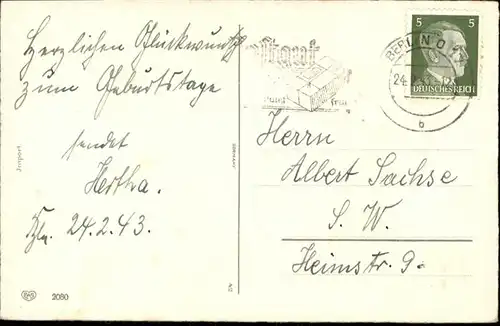 Herzlichen Glückwunsch
zum Geburtstage
sendet
Hertha.
Bln. 24.2.43.
Import
2080
BERLIN O
24.
b
5 5
DEUTSCHES REICH
Herrn
Albert Sachse
S. W.
Heimstr. 9.